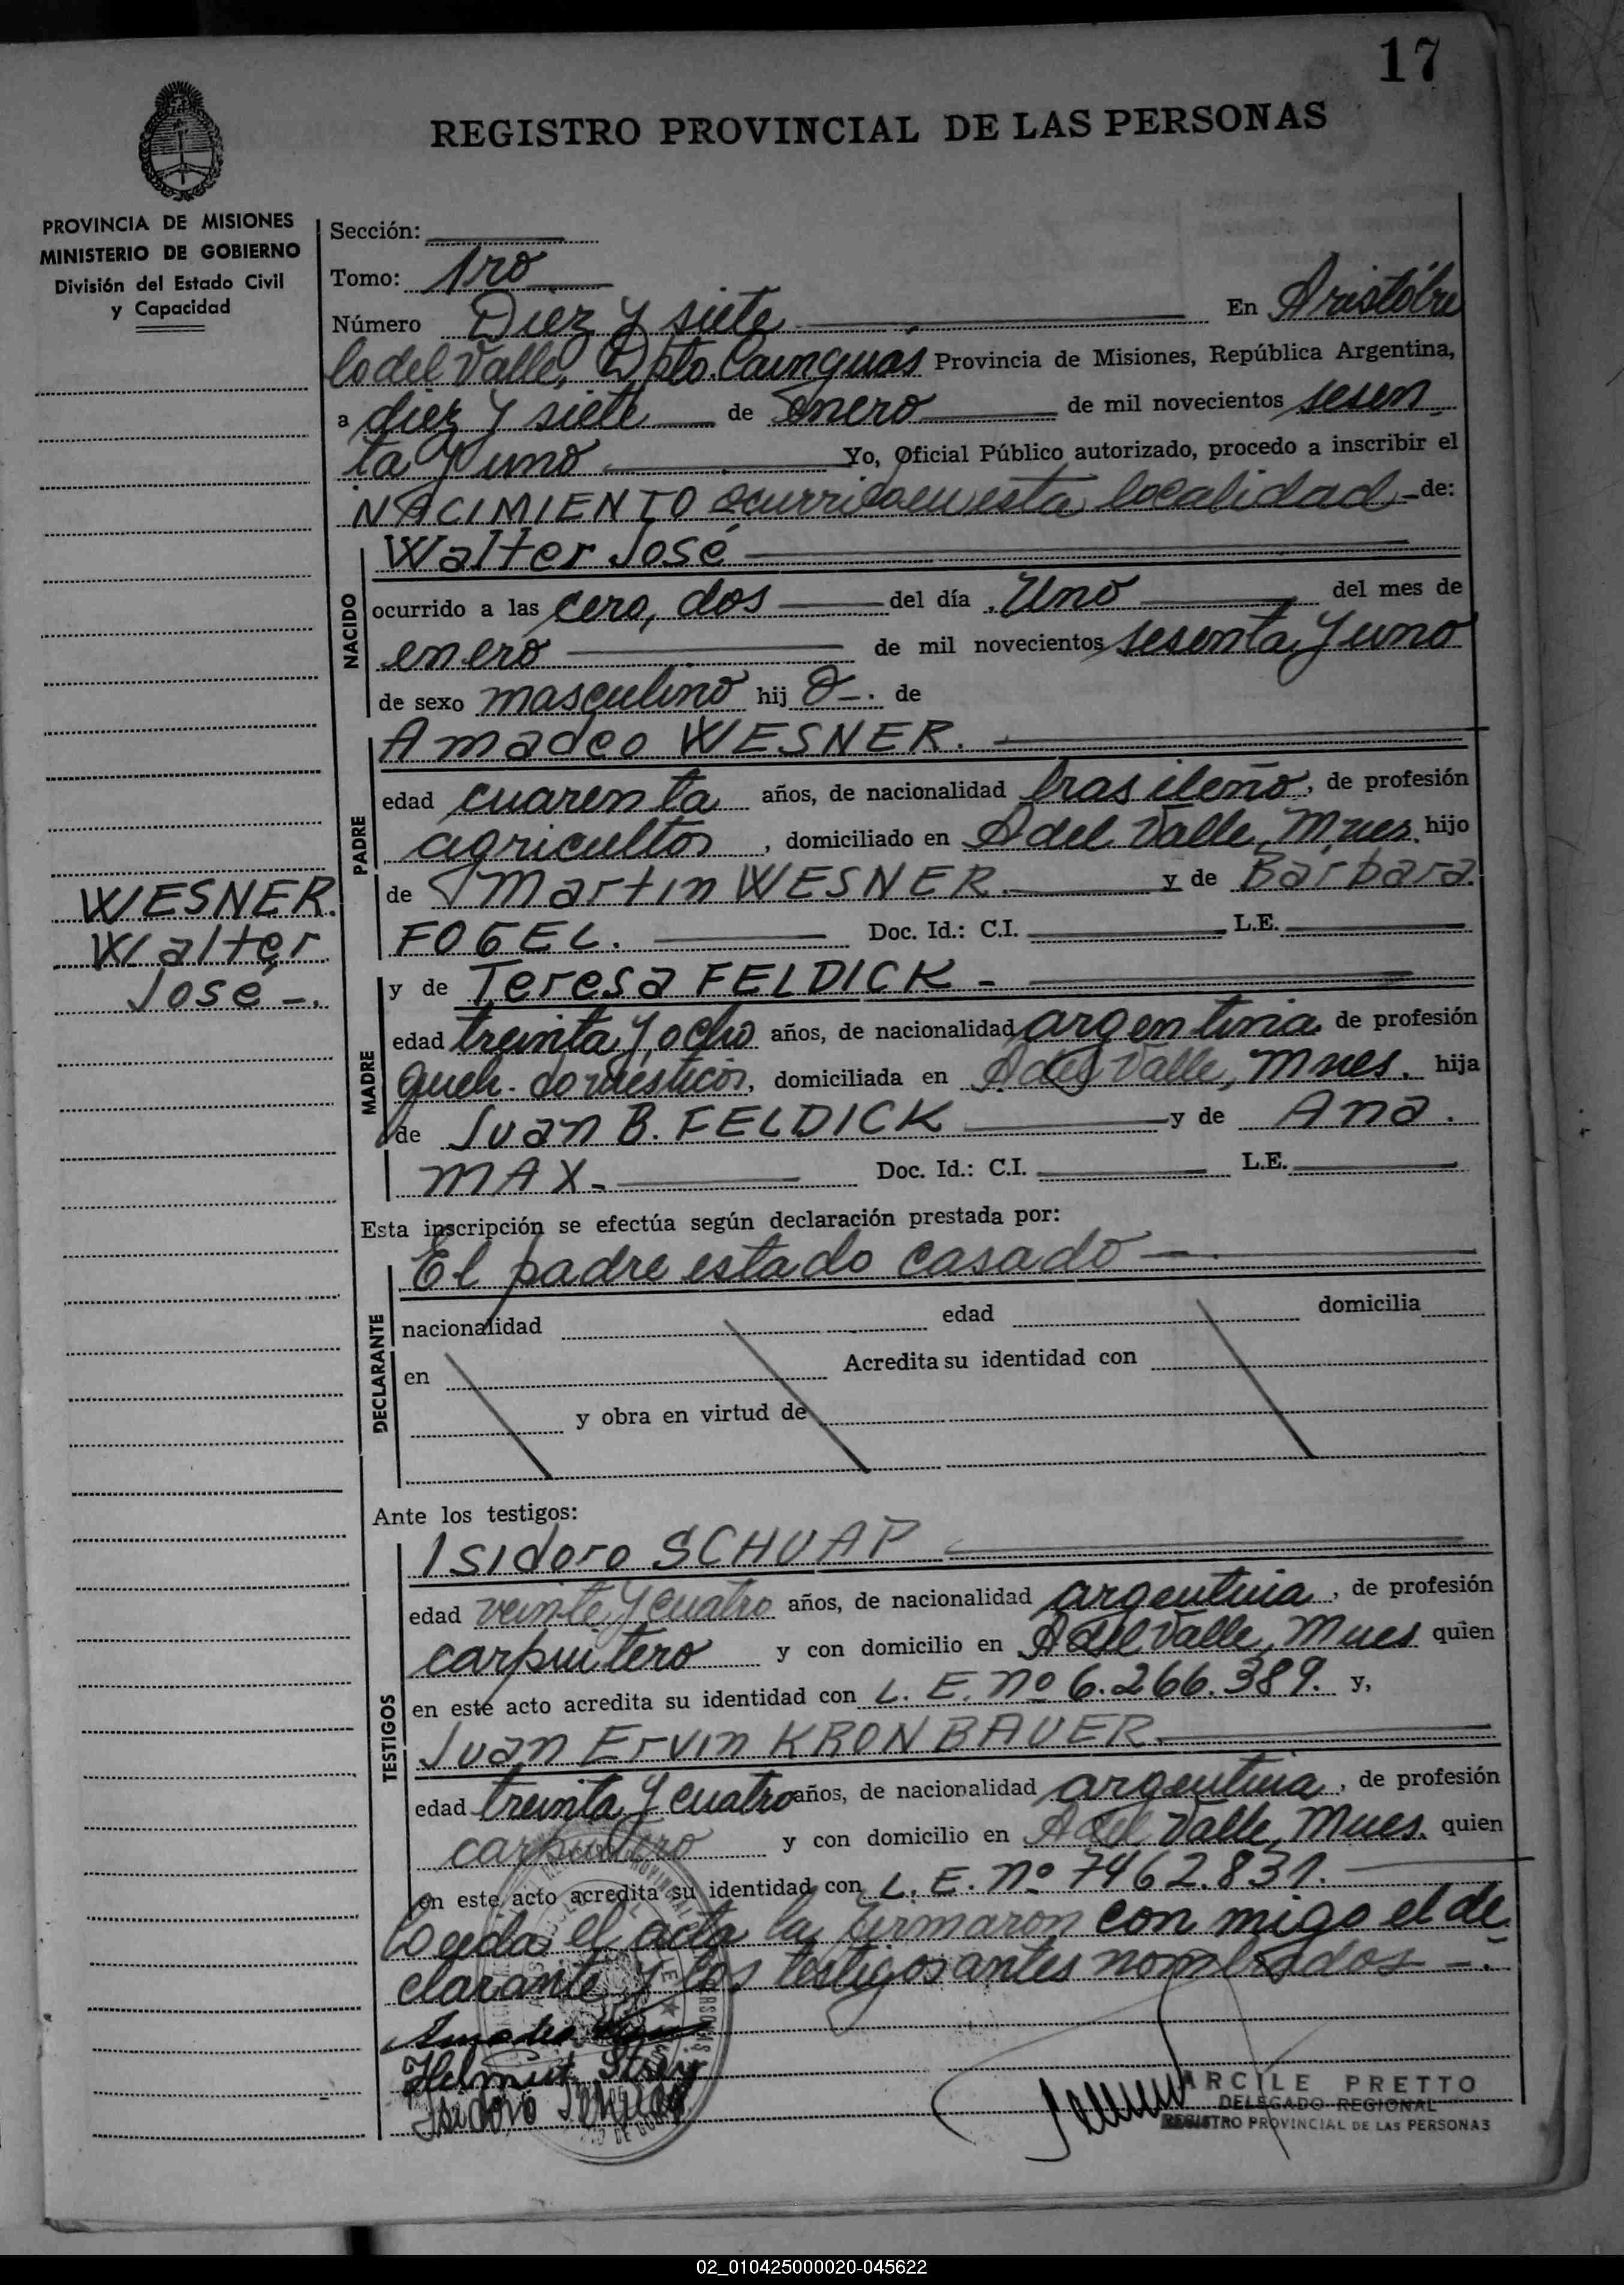 17
REGISTRO PROVINCIAL DE LAS PERSONAS
PROVINCIA DE MISIONES
MINISTERIO DE GOBIERNO
División del Estado Civil
y Capacidad
Sección:
Tomo: 1ro
Número Diez y siete En Aristóbu
lo del Valle, Dpto. Cainguas Provincia de Misiones, República Argentina,
a diez y siete de Enero de mil novecientos sesen
ta y uno Yo, Oficial Público autorizado, procedo a inscribir el
NACIMIENTO ocurrido en esta localidad - de:
NACIDO
Walter José
ocurrido a las cero, dos del día Uno del mes de
enero de mil novecientos sesenta y uno
de sexo masculino hij o-. de
PADRE
Amadeo WESNER.
edad cuarenta años, de nacionalidad brasileño, de profesión
agricultor, domiciliado en A del Valle, Mnes. hijo
de Martin WESNER. y de Barbara.
FOGEL. Doc. Id.: C.I. L.E.
WESNER.
Walter
José -.
MADRE
y de Teresa FELDICK -
edad treinta y ocho años, de nacionalidad argentina de profesión
queh. domésticos, domiciliada en A del Valle, Mnes. hija
de Juan B. FELDICK y de Ana.
MAX. Doc. Id.: C.I. L.E.
Esta inscripción se efectúa según declaración prestada por:
DECLARANTE
El padre estado casado
nacionalidad edad domicilia
en Acredita su identidad con
y obra en virtud de
Ante los testigos:
TESTIGOS
Isidoro SCHUAP
edad veinte y cuatro años, de nacionalidad argentina, de profesión
carpintero y con domicilio en A del Valle, Mnes quien
en este acto acredita su identidad con L. E. Nº 6.266.389. y,
Juan Ervin KRONBAUER.
edad treinta y cuatro años, de nacionalidad argentina, de profesión
carpintero y con domicilio en A del Valle, Mnes. quien
en este acto acredita su identidad con L. E. Nº 7462.831.
Leida el acta la firmaron con migo el de
clarante y los testigos antes nombrados -.
Amadeo
Helmut
Isidoro
ARCILE PRETTO
DELEGADO REGIONAL
REGISTRO PROVINCIAL DE LAS PERSONAS
02_010425000020-045622